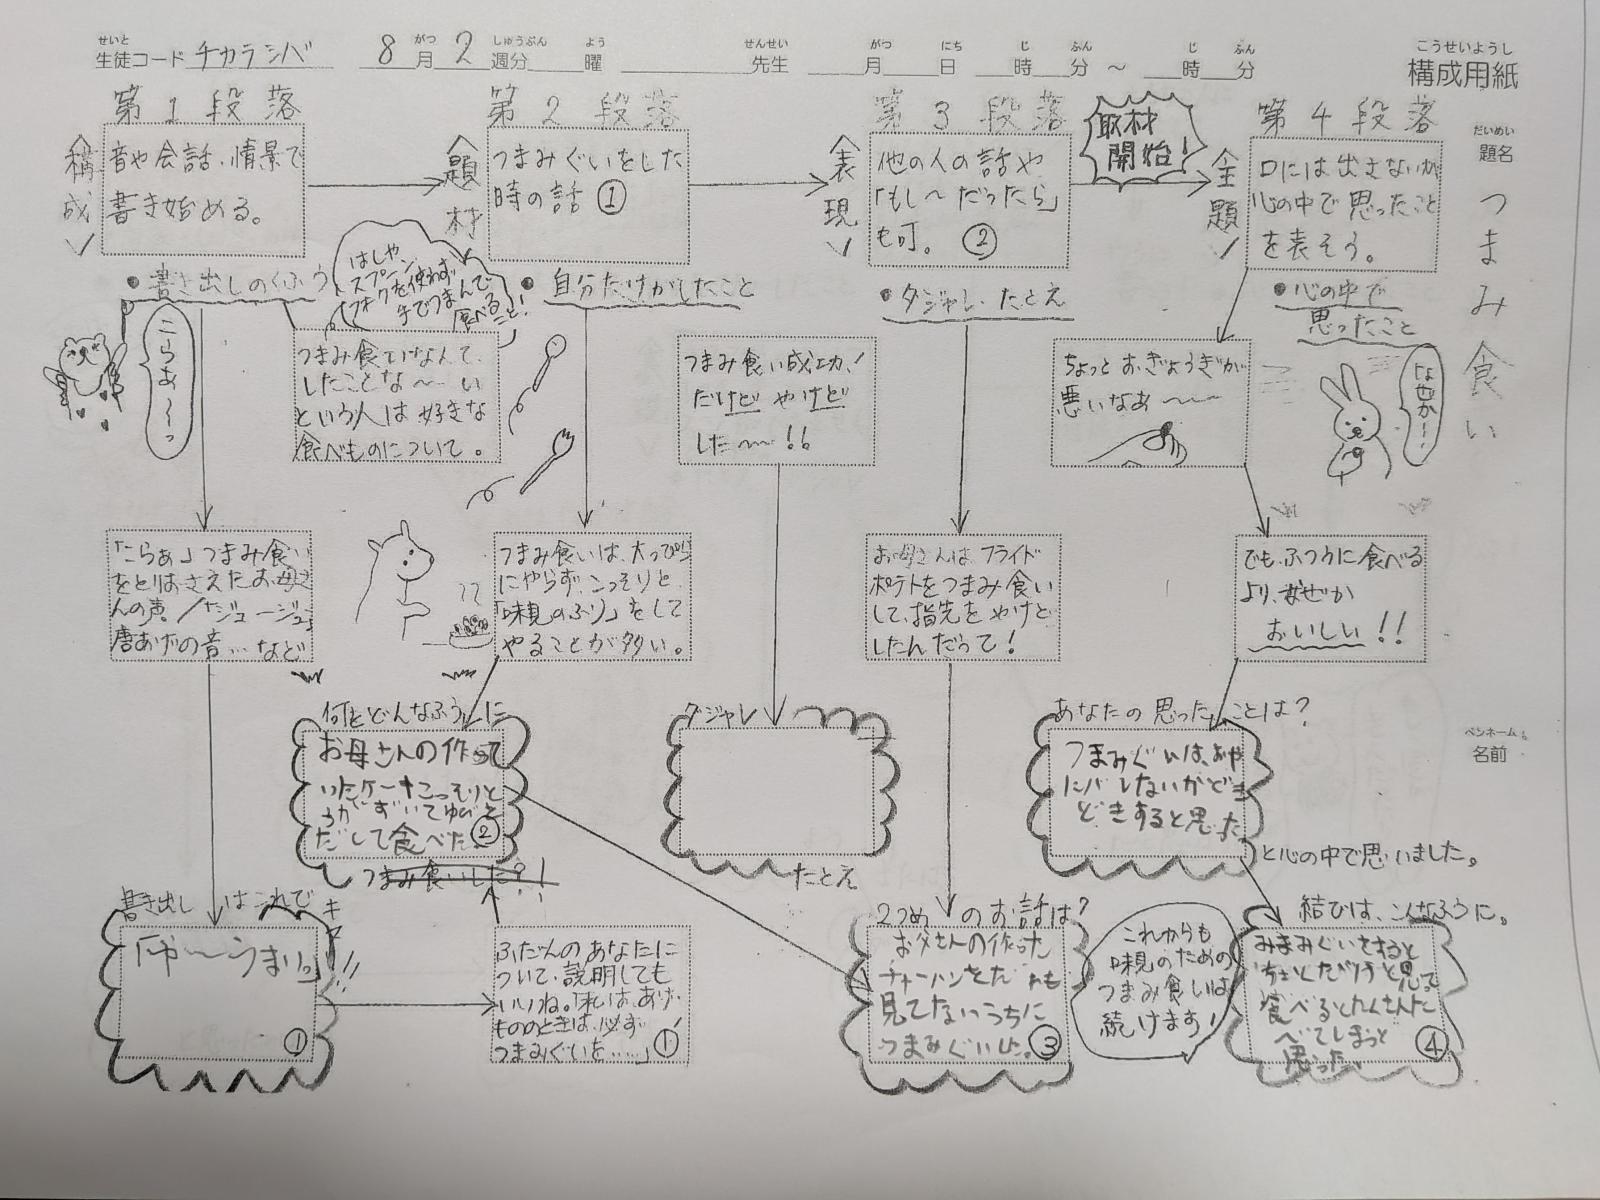 せいと
生徒コード チカラシバ 8月2週分 曜 先生 月 日 時 分 ~ 時 分
がつ しゅうぶん よう せんせい がつ にち じ ふん じ ふん
こうせいようし
構成用紙
だいめい
題名
つまみ食い
ペンネーム
名前
第1段落
〈構成〉
音や会話、情景で
書き始める。
●書き出しのくふう
こらあ〜〜っ
つまみ食いなんて、
したことな〜〜い
という人は好きな
食べものについて。
「こらぁ」つまみ食い
をとりおさえたお母さ
んの声/「ジュージュー」
唐あげの音…など
書き出しはこれでキマリ!!
「や〜〜うまい。」
①
第2段落
〈題材〉
つまみぐいをした
時の話①
はしや
スプーン、
フォークを使わず
手でつまんで
食べること!
●自分だけがしたこと
つまみ食いは、大っぴら
にやらず、こっそりと
「味見のふり」をして
やることが多い。
何をどんなふうに
お母さんの作って
いたケーキこっそりと
だして食べた。②
つまみ食いした?!
ふだんのあなたに
ついて、説明しても
いいね。「私は、あげ
もののときは、必ず
つまみぐいを……」①'
第3段落
〈表現〉
他の人の話や
「もし〜だったら」
も可。②
●ダジャレ・たとえ
つまみ食い成功!
だけどやけど
した〜〜!!
お母さんは、フライド
ポテトをつまみ食い
して、指先をやけど
したんだって!
ダジャレ
たとえ
2つめのお話は?
お父さんの作った
チャーハンをだれも
見てないうちに
つまみぐいした。③
取材
開始!
第4段落
〈全題〉
口には出さないが
心の中で思ったこと
を表そう。
●心の中で
思ったこと
ちょっとおぎょうぎが
悪いなあ〜〜
なぜか〜〜
でも、ふつうに食べる
より、なぜか
おいしい!!
あなたの思ったことは?
つまみぐいは、おや
にバレないかどき
どきすると思った
と心の中で思いました。
これからも
味見のための
つまみ食いは
続けます!
結びは、こんなふうに。
食べるとたくさんた
べてしまうと
思った。
④